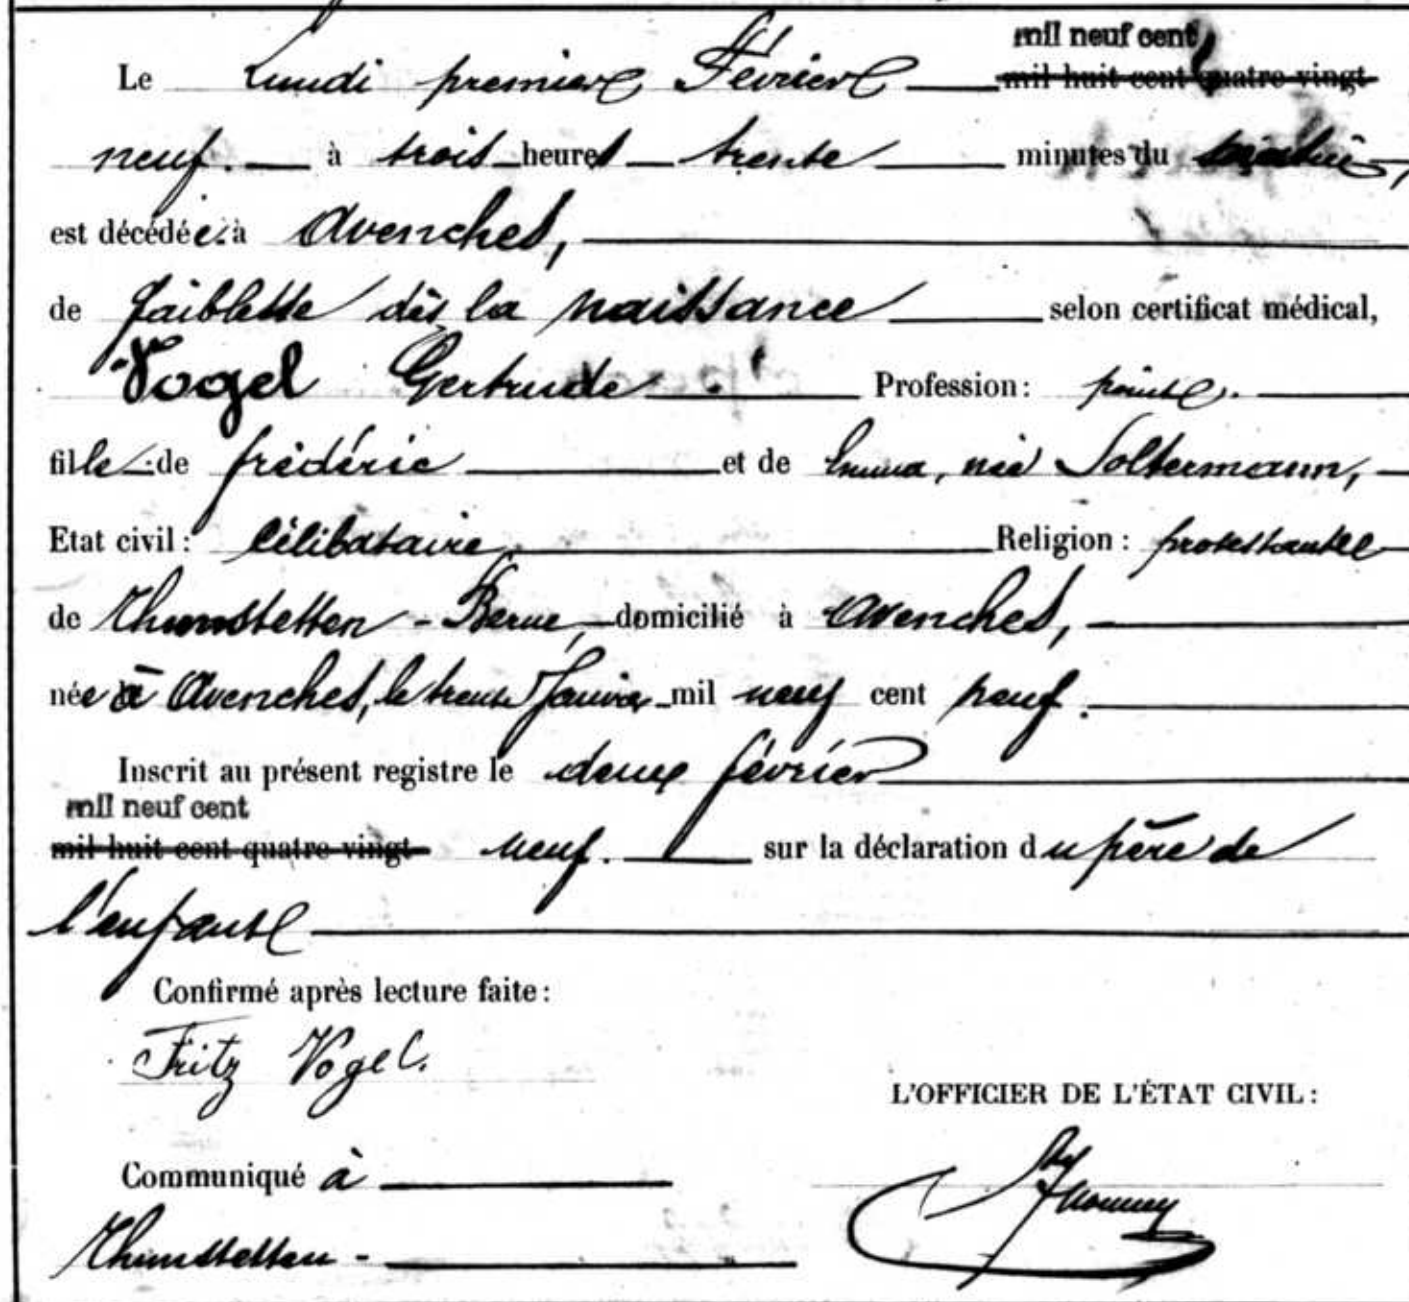 mil neuf cent
Le Lundi premier Février mil huit cent quatre-vingt
neuf. à trois heures trente minutes du matin,
est décédée à Avenches,
de faiblesse dès la naissance selon certificat médical,
Vogel Gertrude Profession: point.
fille de frédéric et de Emma, née Soltermann,
Etat civil: Célibataire, Religion: protestante
de Thunstetten - Berne, domicilié à Avenches,
née à Avenches, le trente Janvier mil neuf cent neuf.
Inscrit au présent registre le deux février
mil neuf cent
mil huit cent quatre-vingt neuf. sur la déclaration du père de
l'enfant
Confirmé après lecture faite:
Fritz Vogel.
L'OFFICIER DE L'ÉTAT CIVIL:
Communiqué à
Thunstetten -